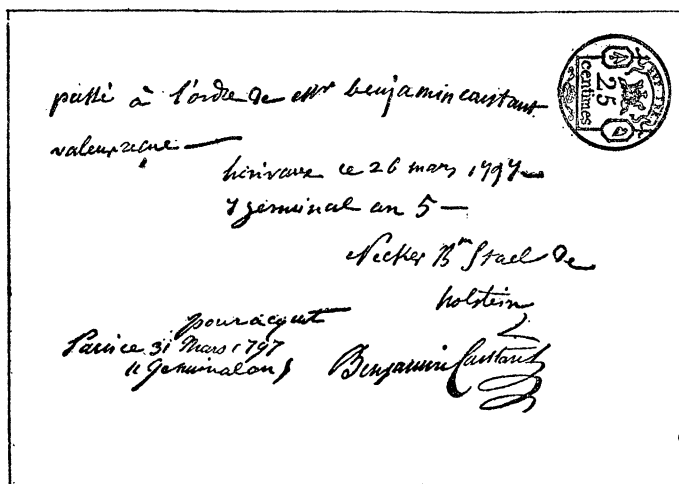 passé à l'ordre de Mr benjamin constant
valeur reçue —
hérivaux ce 26 mars 1797 —
7 germinal an 5 —
Necker Bne Stael de
holstein
pour acquit
Paris ce 31 Mars 1797
11 Germinal an 5
Benjamin Constant
25
centimes